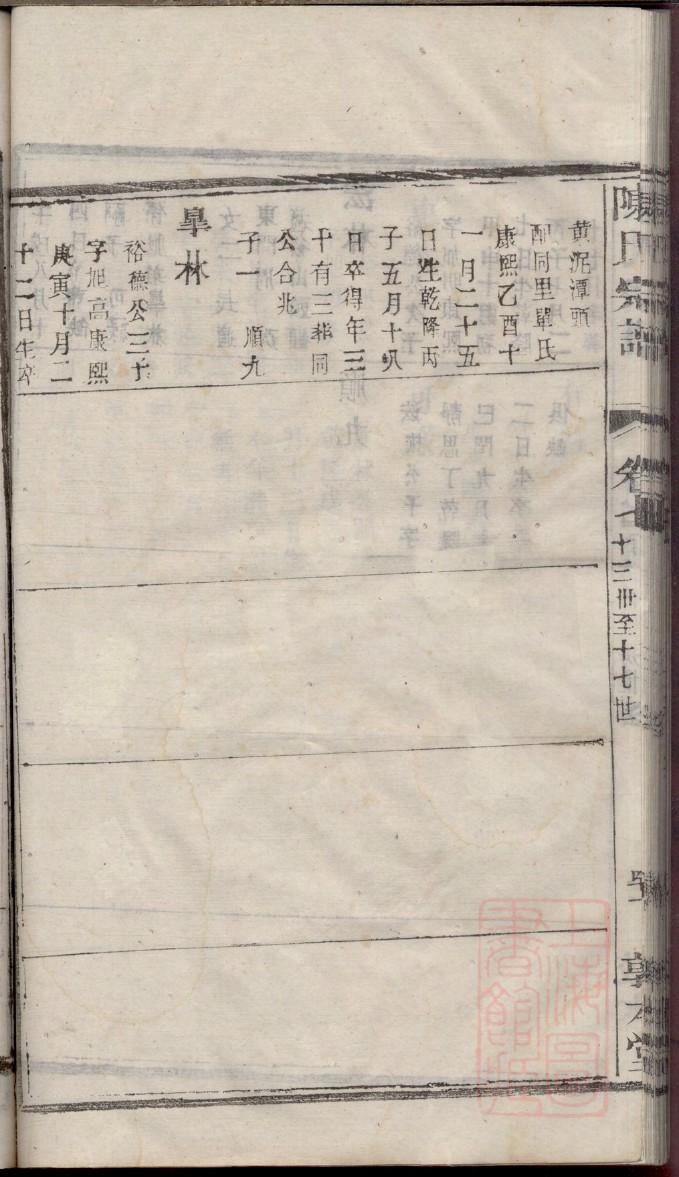 黄泥潭頭
配同里單氏
康熙乙酉十
一月二十五
日生乾隆丙
子五月十八
日卒得年三
十有三葬同
公合兆
子一　順九
皐林
裕德公三子
字旭高康熙
庚寅十月二
十二日生卒
陳氏宗譜
卷七
十三世至十七世
敦本堂
上海圖書館藏